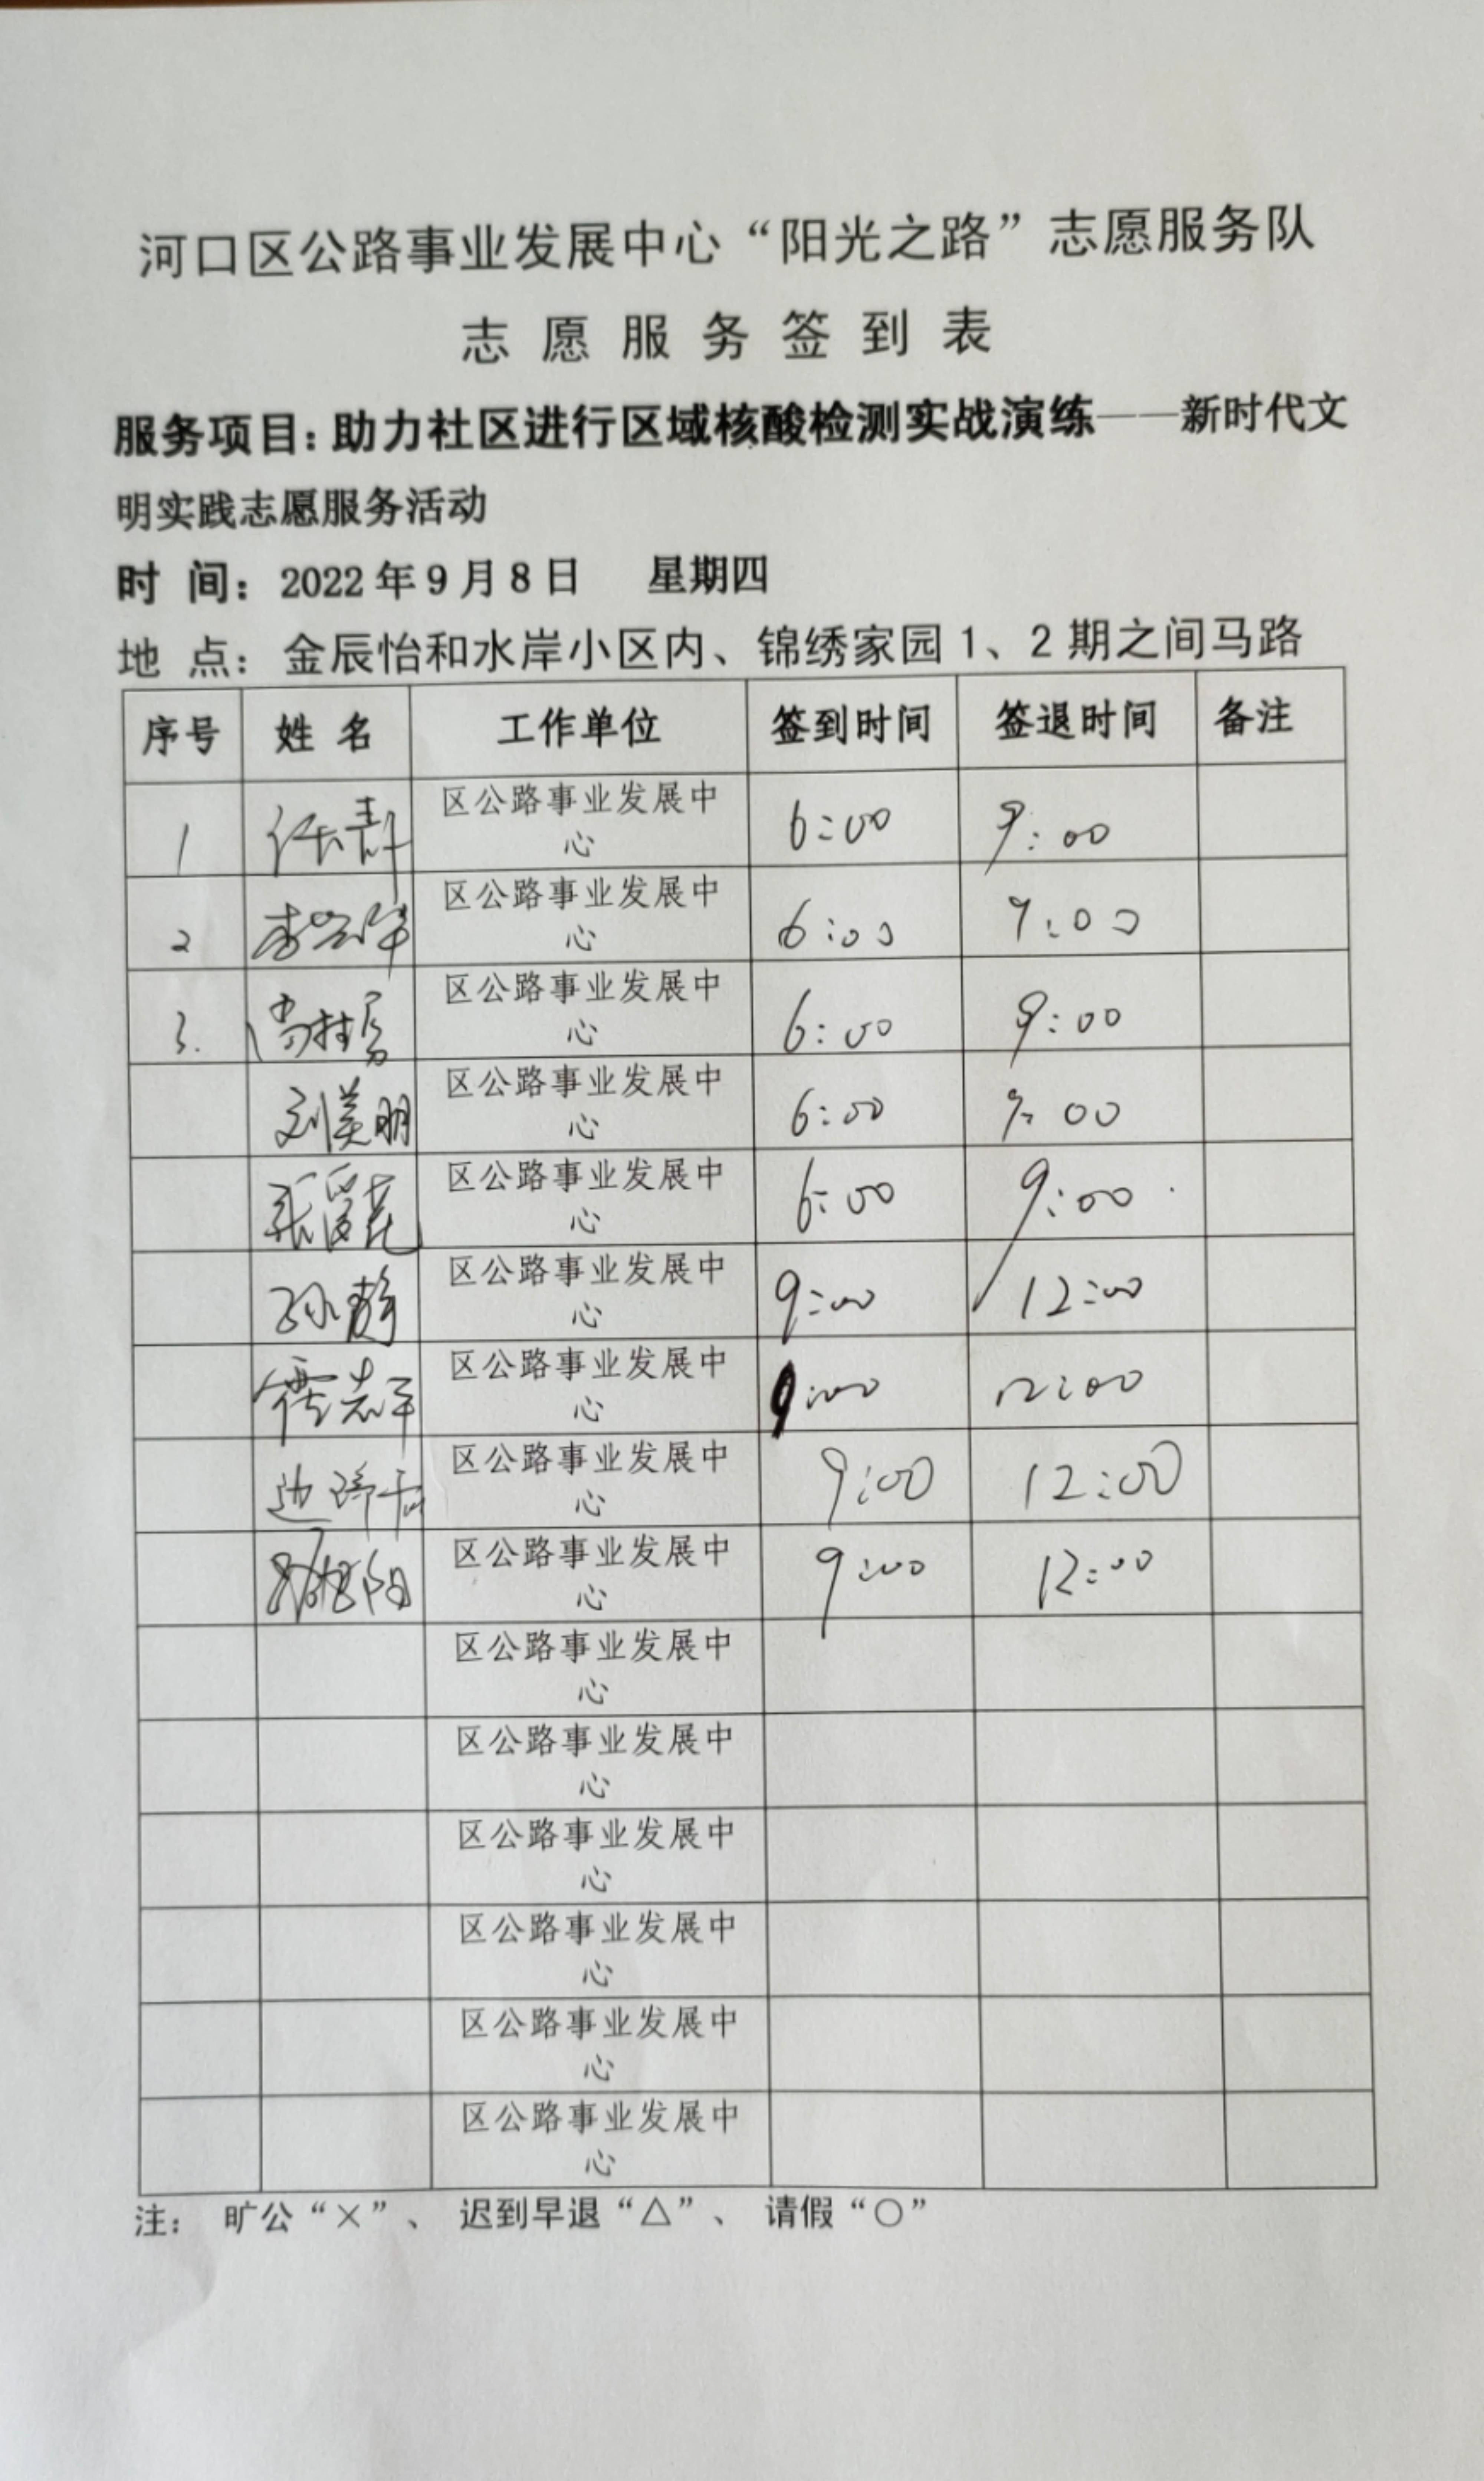 河口区公路事业发展中心“阳光之路”志愿服务队
志愿服务签到表
服务项目：助力社区进行区域核酸检测实战演练——新时代文
明实践志愿服务活动
时 间：2022年9月8日 星期四
地 点：金辰怡和水岸小区内、锦绣家园1、2期之间马路
序号 姓名 工作单位 签到时间 签退时间 备注
1 任青 区公路事业发展中 6:00 9:00
心
2 区公路事业发展中 6:00 9:00
心
3. 区公路事业发展中 6:00 9:00
心
刘美明 区公路事业发展中 6:00 9:00
心
区公路事业发展中 6:00 9:00
心
孙静 区公路事业发展中 9:00 12:00
心
区公路事业发展中 9:00 12:00
心
区公路事业发展中 9:00 12:00
心
区公路事业发展中 9:00 12:00
心
区公路事业发展中
心
区公路事业发展中
心
区公路事业发展中
心
区公路事业发展中
心
区公路事业发展中
心
区公路事业发展中
心
注： 旷公“×”、 迟到早退“△”、 请假“○”